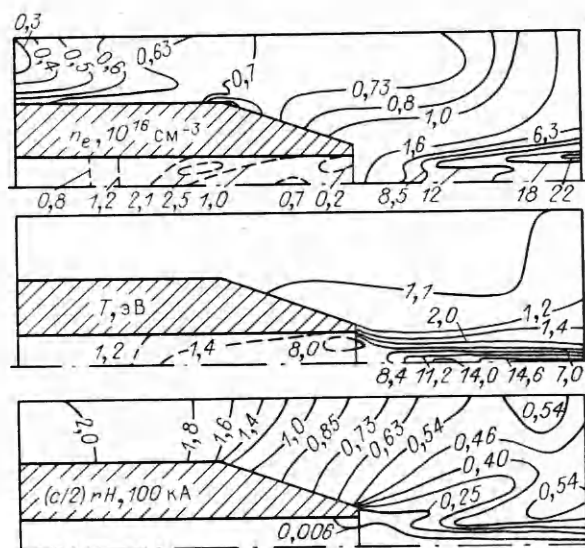 0,3
0,4 0,5 0,6 0,63
0,7
0,73
0,8
1,0
nₑ, 10¹⁶ см⁻³
1,6 6,3
0,8 1,2 2,1 2,5 1,0 0,7 0,2 8,5 12 18 22
1,1
T, эВ
1,2
2,0 1,4
1,2 1,4 8,0
8,4 11,2 14,0 14,6 7,0
2,0 1,8 1,6 1,4 1,0 0,85 0,73 0,63 0,54 0,46 0,54
0,40
(c/2) rH, 100 кА
0,25 0,54
0,006